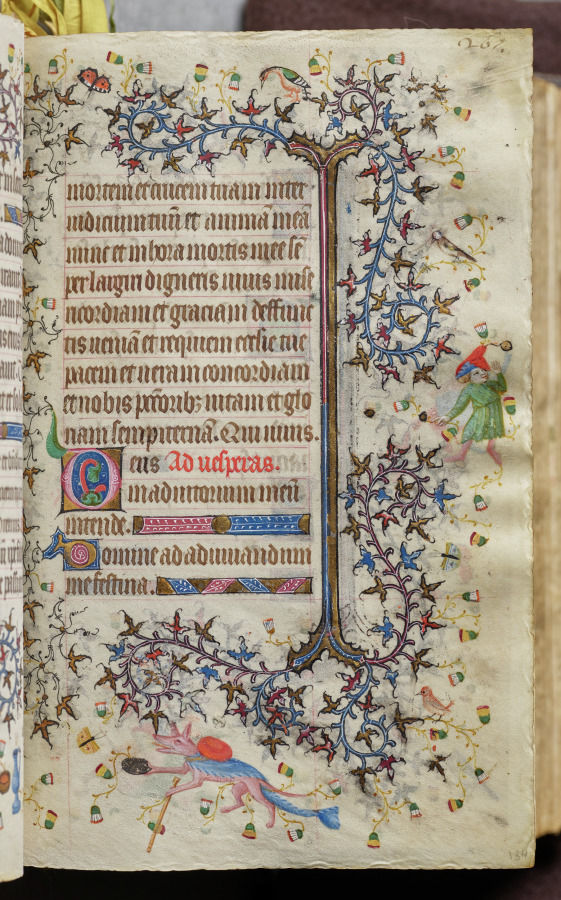 267.
mortem et aīcem tuam inter
iudiciumtuū et animā meā
nunc et in hora mortis mee sē
per largiri digneris uiuis mise
ricordiam et graciam deffunc
tis ueniā et requiem ecclie tue
pacem et ueram concordiam
et nobis pctōrib; uitam et glo
riam sempiternā. Qui uiuis.
eus Ad uesperas.
in adiutorium meū
intende.
Domine ad adiuuandum
me festina.